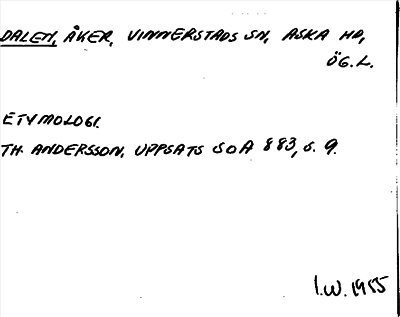 DALEN, ÅKER, VINNERSTADS SN, ASKA HD,
ÖG.L.
ETYMOLOGI.
TH. ANDERSSON, UPPSATS SOA 883, S. 9.
I.W. 1955